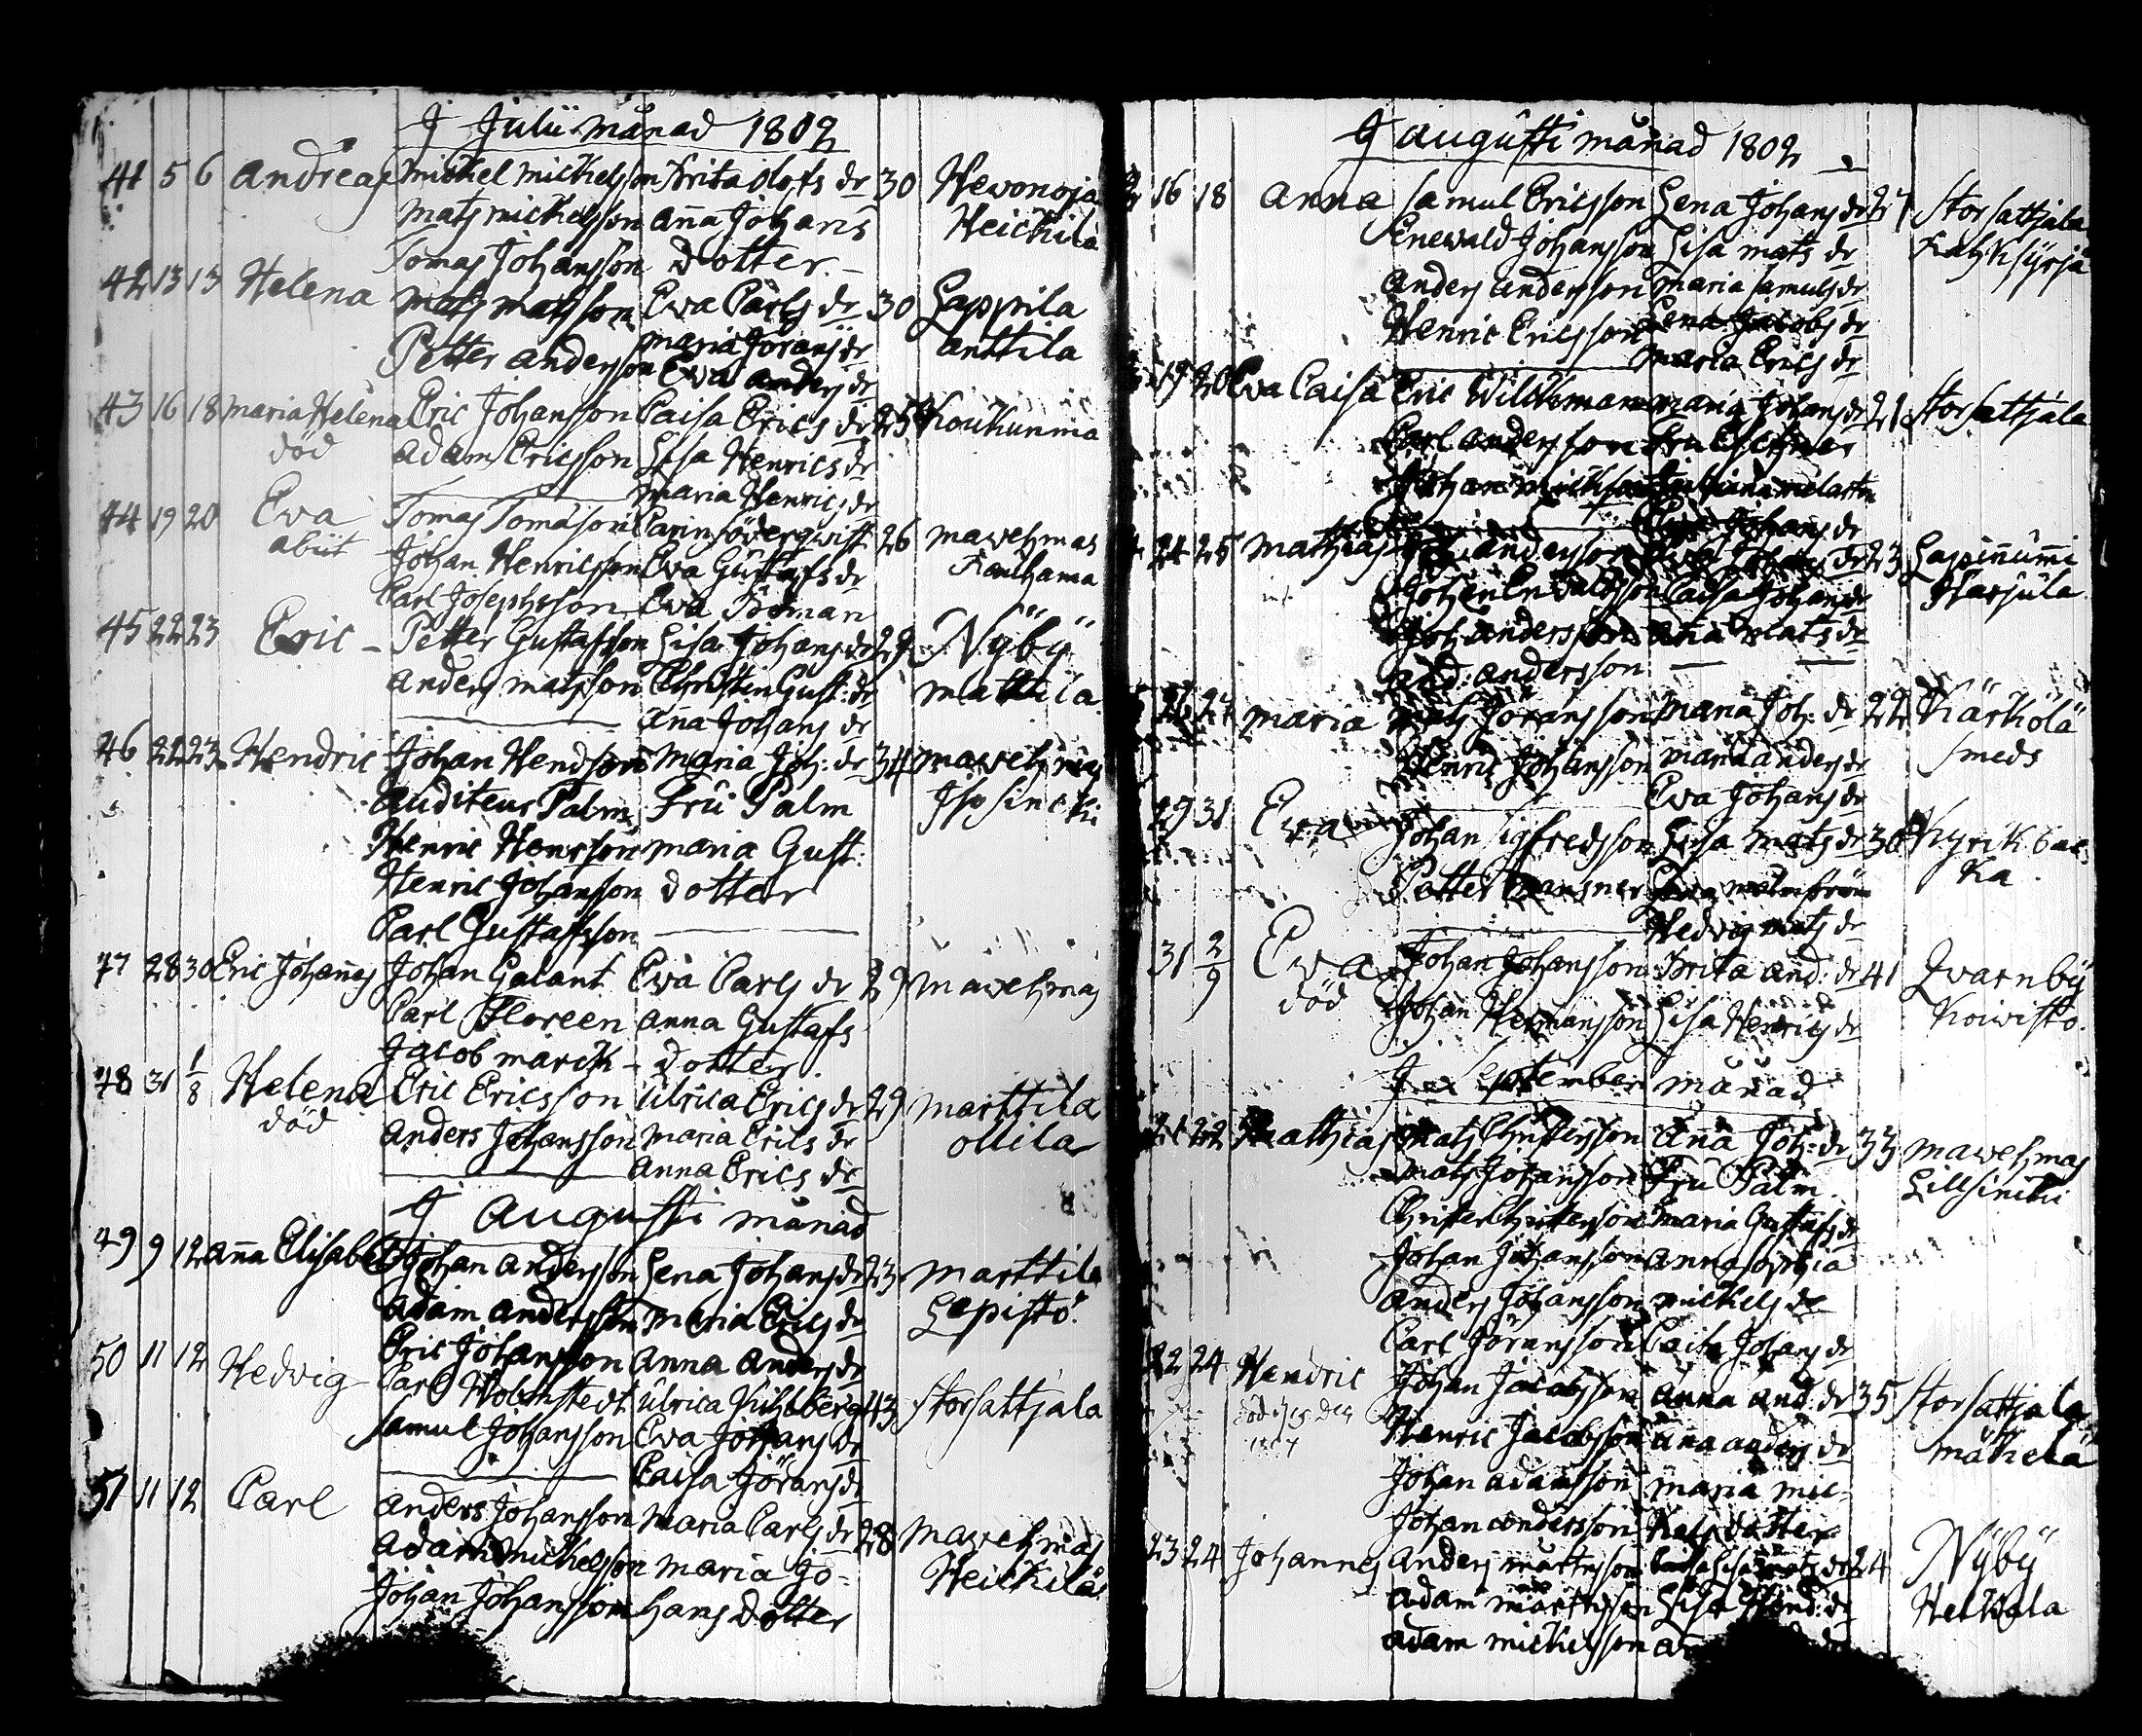 J Julii månad 1802
41 5 6 Andreas Michel Michelsson Brita Olofs dr 30 Hevonoja
Mats Michelsson Anna Johans Heickilä
Tomas Johansson dotter
42 13 13 Helena Mats Matsson Ewa Carls dr 30 Lappila
Petter Andersson Maria Jörans dr Anttila
Ewa Anders dr
43 16 18 Maria Helena Eric Johansson Caisa Erics dr 25 Koukunma
död Adam Ericsson Lisa Henrics dr
Maria Henrics dr
44 19 20 Eva Tomas Tomasson Carin Söderqwist 26 Mawehmas
abiit Johan Henricsson Eva Gustafs dr Kauhama
Carl Josephsson Ewa
45 22 23 Eric Petter Gustafsson Lisa Johans dr 29 Nÿbÿ
Anders Matsson Christin Gust: dr Mattila
Anna Johans dr
46 22 23 Hendric Johan Hendsson Maria Joh: dr 34 Mawehmas
Auditeur Palm Fru Palm Iso sincki
Henric Henrsson Maria Gust:
Henric Johansson dotter
Carl Gustafsson
47 28 30 Eric Johannes Johan Galant Ewa Carls dr 29 Mawehmas
Carl Floreen Anna Gustafs
Jacob Marck dotter
48 31 1/8 Helena Eric Ericsson Ulrica Erics dr 29 Marttila
död Anders Johansson Maria Erics dr Ollila
Anna Erics dr
J Augusti månad
49 9 12 Anna Elisabet Johan Andersson Lena Johans dr 23 Marttila
Adam Andersson Maria Erics dr Lepistö
Eric Johansson Anna Anders dr
50 11 12 Hedvig Carl Holmstedt Ulrica Kihlberg 43 Storsattjala
Samul Johansson Eva Johans dr
Caisa Jörans dr
51 11 12 Carl Anders Johansson Maria Carls dr 28 Mawehmas
Adam Michelsson Maria Jo- Heickilä
Johan Johansson hans dotter
J Augusti månad 1802
16 18 Anna Samul Ericsson Lena Johans dr 27 Storsattjala
Enewald Johansson Lisa Mats dr
Anders Andersson Maria Samuls dr
Henric Ericsson Lena Jacobs dr
Maria Erics dr
19 20 Eva Caisa Eric Wilckman Maria Johans dr 21 Storsattjala
Carl Andersson Fru
Johan
Johans dr
24 25 Mathias Andersson 23 Lapinnummi
Caisa Johans dr Harjula
Joh: Andersson Anna Mats dr
And: Andersson
26 27 Maria Mats Jöransson Maria Joh: dr 22 Kärkölä
Henric Johansson Maria Anders dr Smeds
Eva Johans dr
29 31 Eva Johan Sigfredsson Lisa Mats dr 30 Kyrckbac
Petter Malmström ka
Hedvig Mats dr
31 2/9 Eva Johan Johansson Brita And: dr 41 Qvarnbÿ
död Johan Hermansson Lisa Henrics dr Koiwisto
J September månad
21 22 Mathias Mats Christersson Anna Joh: dr 33 Mawehmas
Mats Johansson Fru Palm Lillsincki
Christer Christersson Maria Gustafs dr
Johan Johansson Anna Sophia
Anders Johansson Michels dr
Carl Jöransson Caisa Johans dr
22 24 Hendric Johan Jacobsson Anna And: dr 35 Storsattjala
Henric Jacobsson Anna Anders dr Mäkelä
Johan Adamsson Maria Mic-
Johan Andersson kels dotter
23 24 Johannes Anders Mårtensson Lisa Mats dr 24 Nÿbÿ
Adam Mårtensson Lisa Hend: dr Heikola
Adam Michelsson